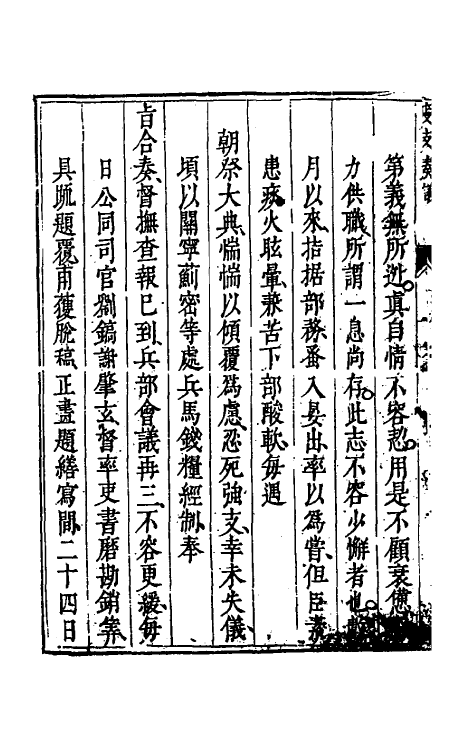 第義無所逃真自情不容恝用是不顧衰憊
力供職所謂一息尚存此志不容少懈者也
月以來拮据部務蚤入晏出率以為嘗但臣素
患痰火眩暈兼苦下部酸軟每遇
朝祭大典惴惴以傾覆為慮忍死強支幸未失儀
頃以關寧薊密等處兵馬錢糧經制奉
旨合奏督撫查報已到兵部會議再三不容更緩每
日公同司官劉鎬謝肇玄督率吏書磨勘銷筭
具疏題覆甫獲脫稿正盡題繕寫間二十四日